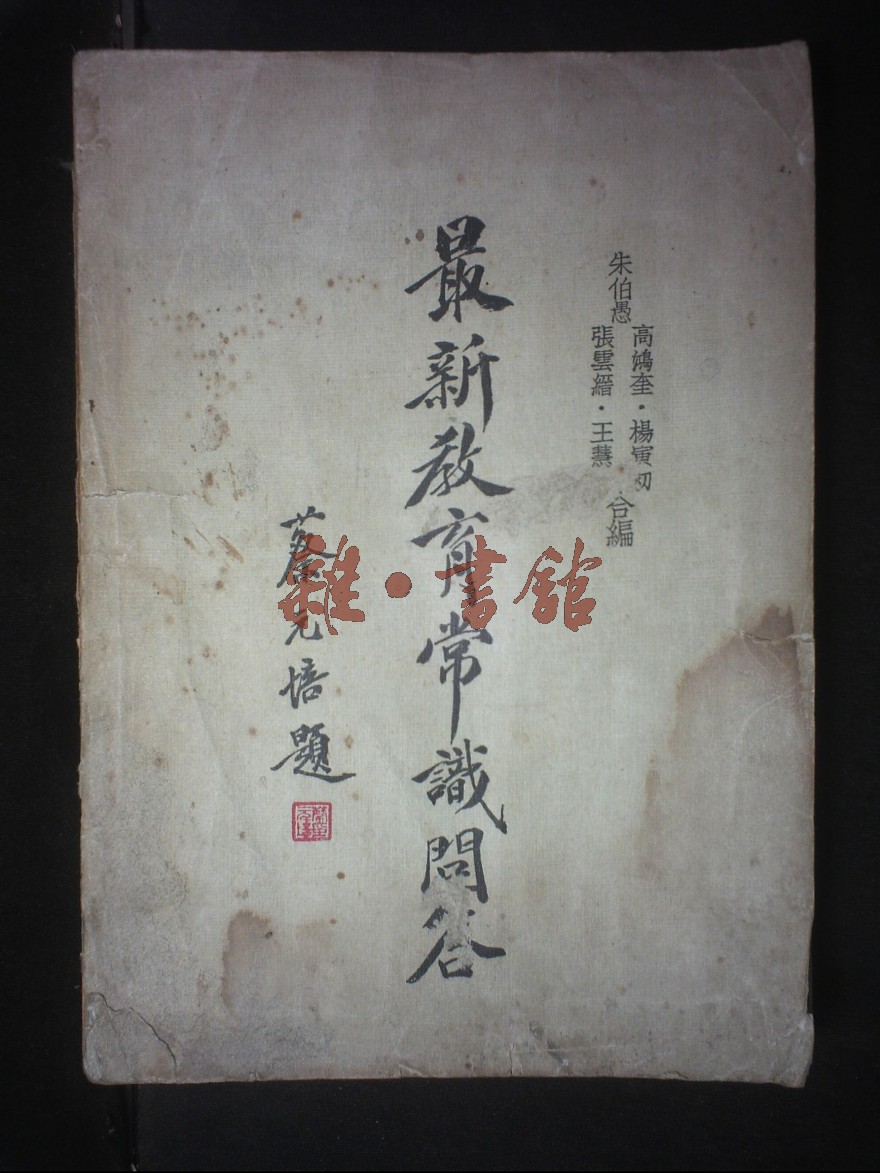 朱伯愚
高鴻奎・楊寅初
張雲縉・王慧
合編
最新教育常識問答
蔡元培題
雜・書館